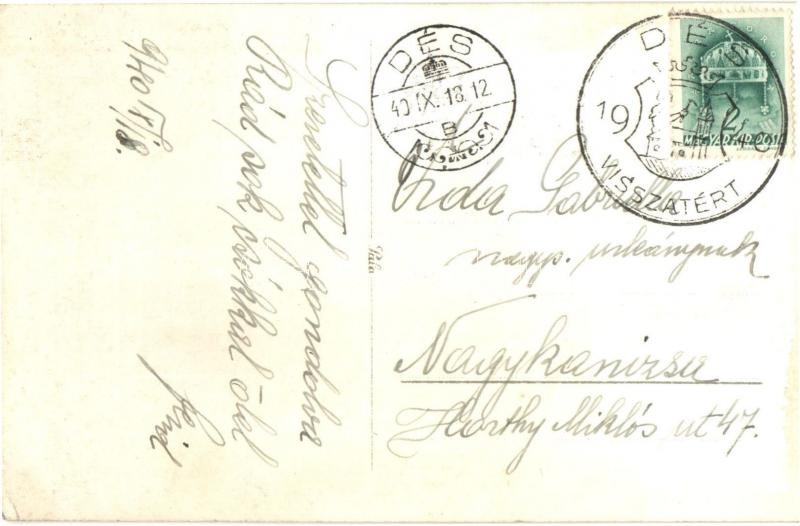 Szeretettel gondolva
Rád sok csókkal ölel
940 IX/18.
DÉS
40.IX.18.12
B
DÉS
19 40
VISSZATÉRT
MAGYAR KIR. POSTA
Vida Gabriella
nagys. urleánynak
Nagykanizsa
Horthy Miklós út 47.